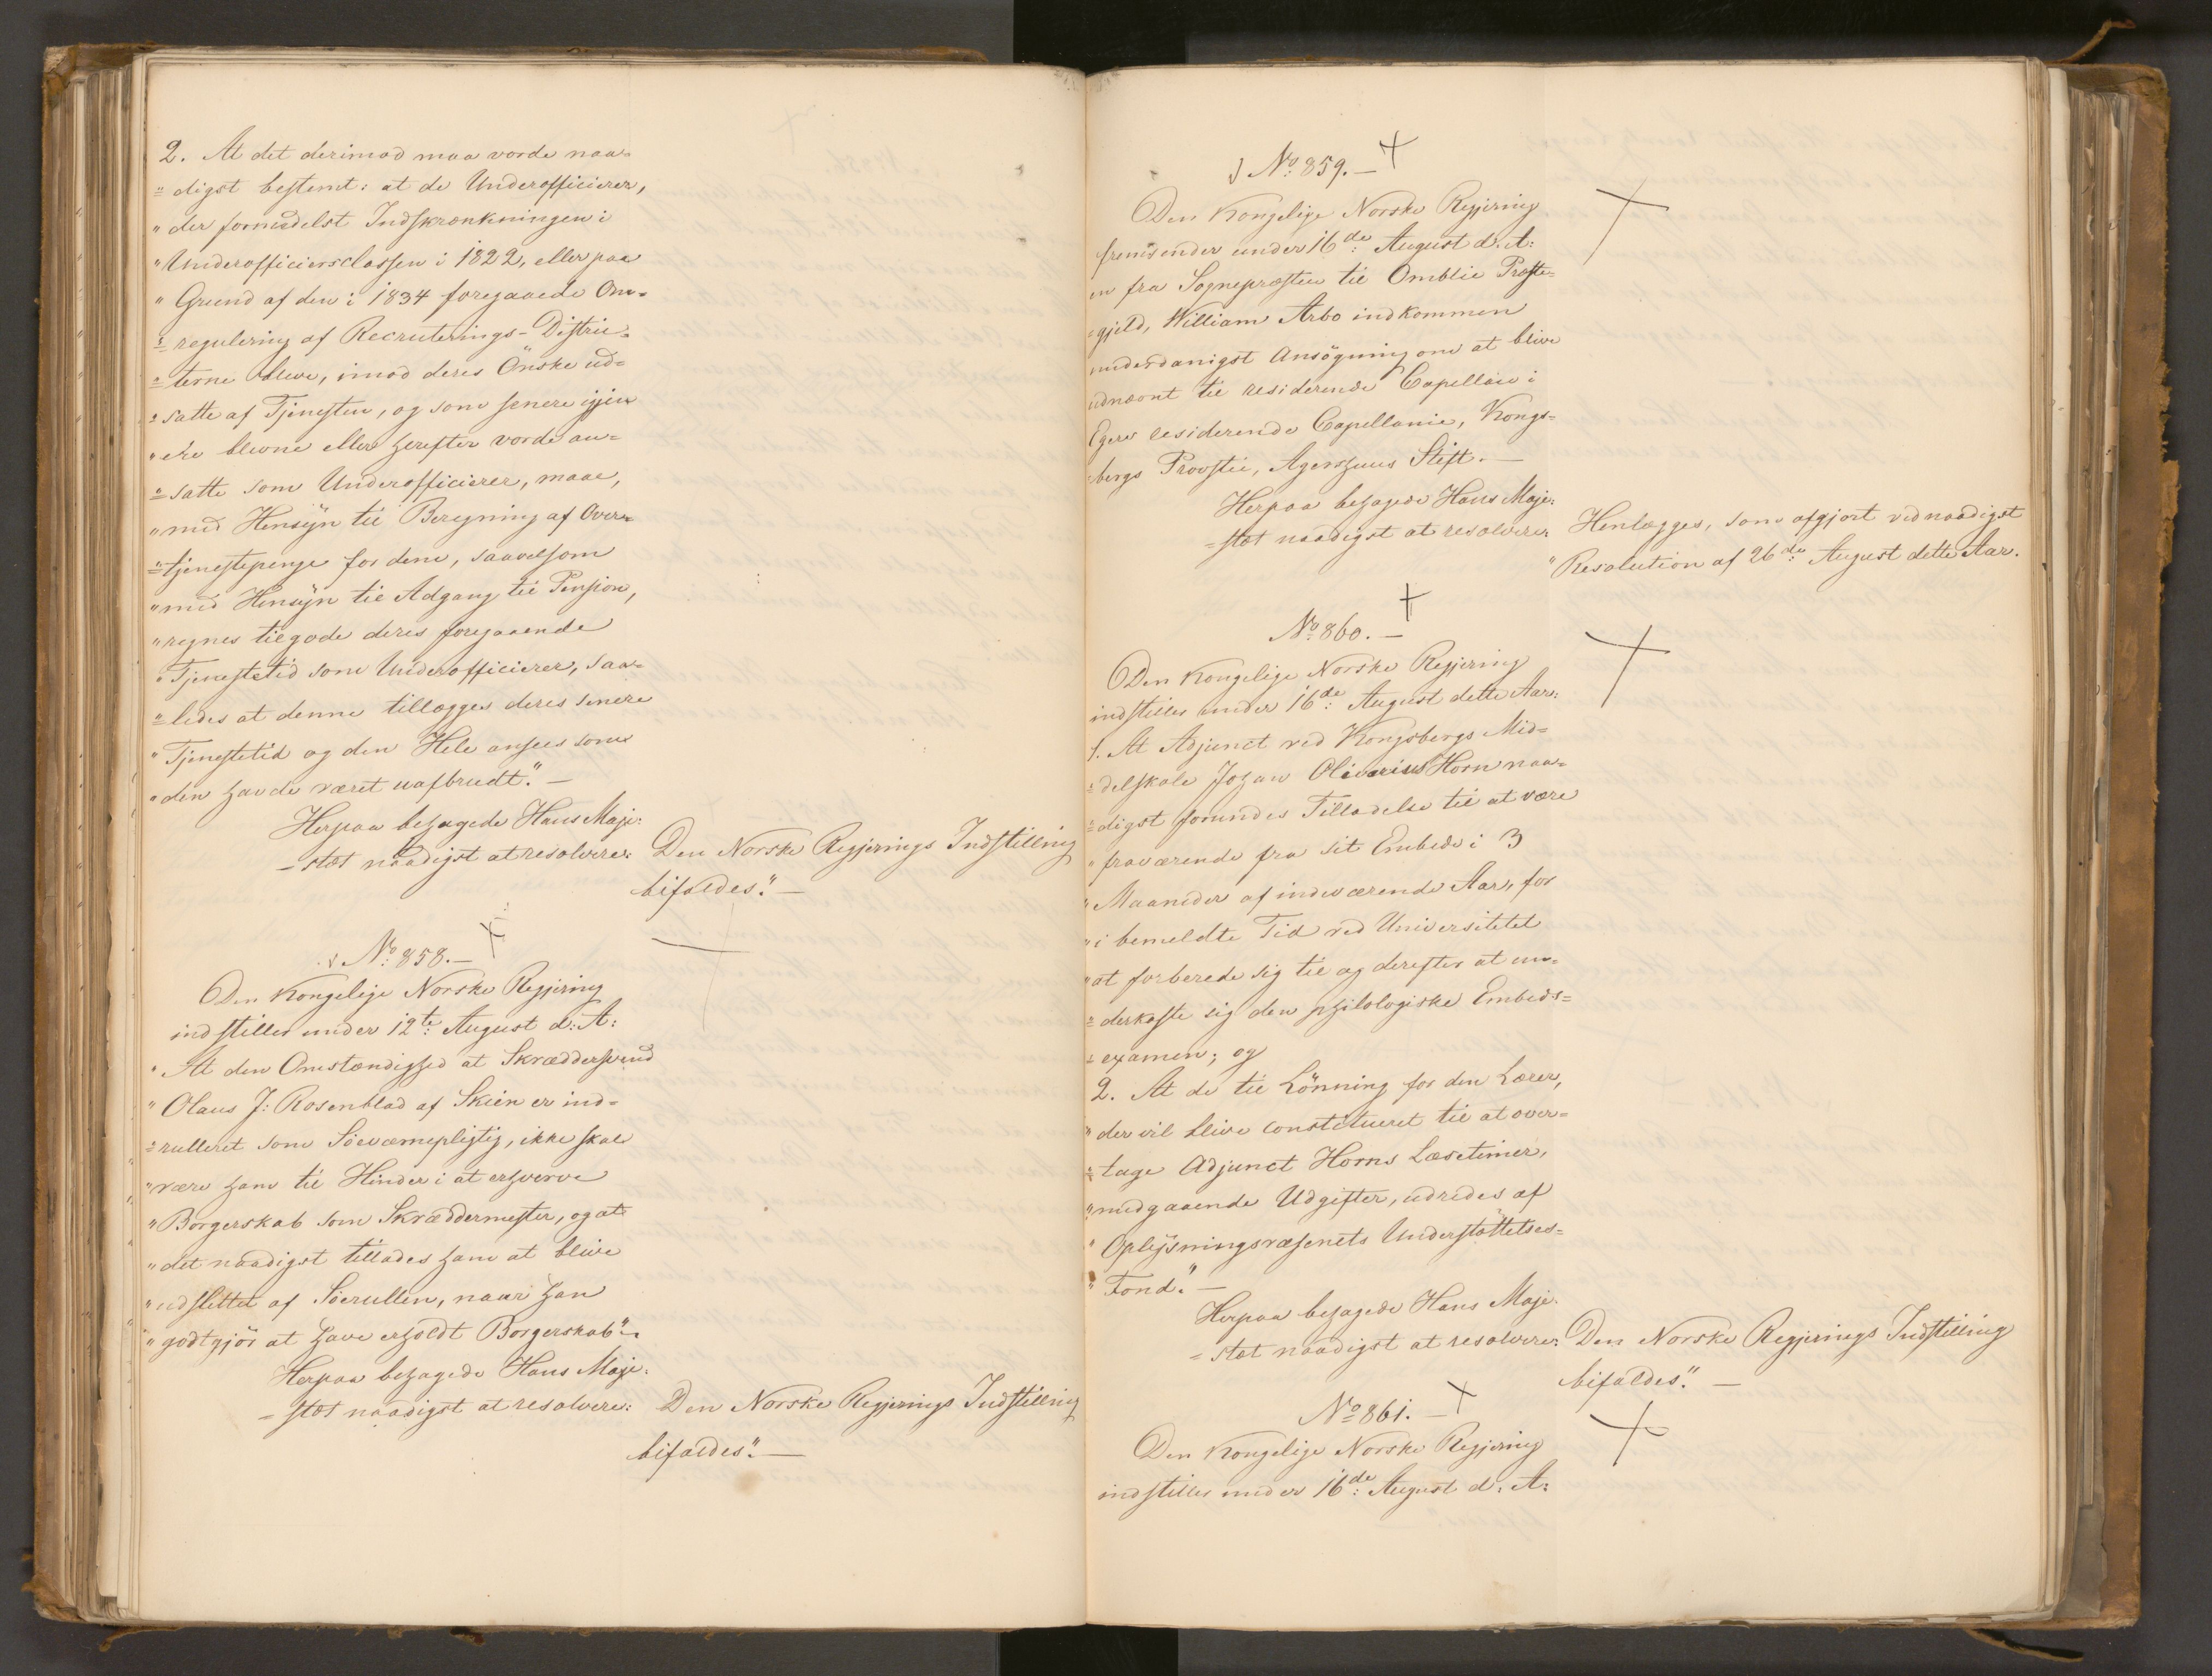 2. At det derimod maa vorde naa-
"digst bestemt: at de Underofficierer,
"der formedelst Indskrænkningen i
"Underofficiersclassen i 1822, eller paa
"Grund af den i 1834 foregaaede Om-
"regulering af Recruterings-Distric-
"terne bleve, imod deres Önske ud-
"satte af Tjenesten, og som senere igjen
"ere blevne eller herefter vorde an-
"satte som Underofficierer, maae,
"med Hensyn til Beregning af Over-
"tjenestepenge for dem, saavelsom
"med Hensyn til Adgang til Pension,
"regnes tilgode deres foregaaende
"Tjenestetid som Underofficierer, saa-
"ledes at denne tillægges deres senere
"Tjenestetid og den Hele ansees som
"den havde været uafbrudt." —
Herpaa behagede Hans Maje-
-stæt naadigst at resolvere: Den Norske Regjerings Indstilling
bifaldes." —
No 858. —
Den Kongelige Norske Regjering
indstiller under 12te August d: A:
"At den Omstændighed at Skræddersvend
"Olaus J: Rosenblad af Skien er ind-
"rulleret som Söeværnepligtig, ikke skal
"være ham til Hinder i at erhverve
"Borgerskab som Skræddermester, og at
"det naadigst tillades ham at blive
"udslettet af Söerullen, naar han
"godtgjör at have erholdt Borgerskab"
Herpaa behagede Hans Maje-
-stæt naadigst at resolvere: Den Norske Regjerings Indstilling
bifaldes." —
No 859. —
Den Kongelige Norske Regjering
fremsender under 16de August d. A:
en fra Sognepræsten til Omblie Præste-
-gjeld, William Arbo indkommen
underdanigst Ansögning om at blive
udnævnt til residerende Capellan i
Egers residerende Capellanie, Kongs-
-bergs Provstie, Agershuus Stift. —
Herpaa behagede Hans Maje-
-stæt naadigst at resolvere: Henlægges, som afgjort ved naadigst
"Resolution af 26de August dette Aar.
No 860. —
Den Kongelige Norske Regjering
indstiller under 16de August dette Aar:
1. At Adjunct ved Kongsbergs Mid-
"delskole Johan Olivarius Horn naa-
"digst forundes Tilladelse til at være
"fraværende fra sit Embede i 3
"Maaneder af indeværende Aar, for
"i bemeldte Tid ved Universitetet
"at forberede sig til og derefter at un-
"derkaste sig den philologiske Embeds-
"examen; og
2. At de til Lönning for den Lærer,
"der vil blive constitueret til at over-
"tage Adjunct Horns Læsetimer,
"medgaaende Udgifter, udredes af
"Oplysningsvæsenets Understöttelses-
"Fond." —
Herpaa behagede Hans Maje-
-stæt naadigst at resolvere: Den Norske Regjerings Indstilling
bifaldes." —
No 861. —
Den Kongelige Norske Regjering
indstiller under 16de August d. A: